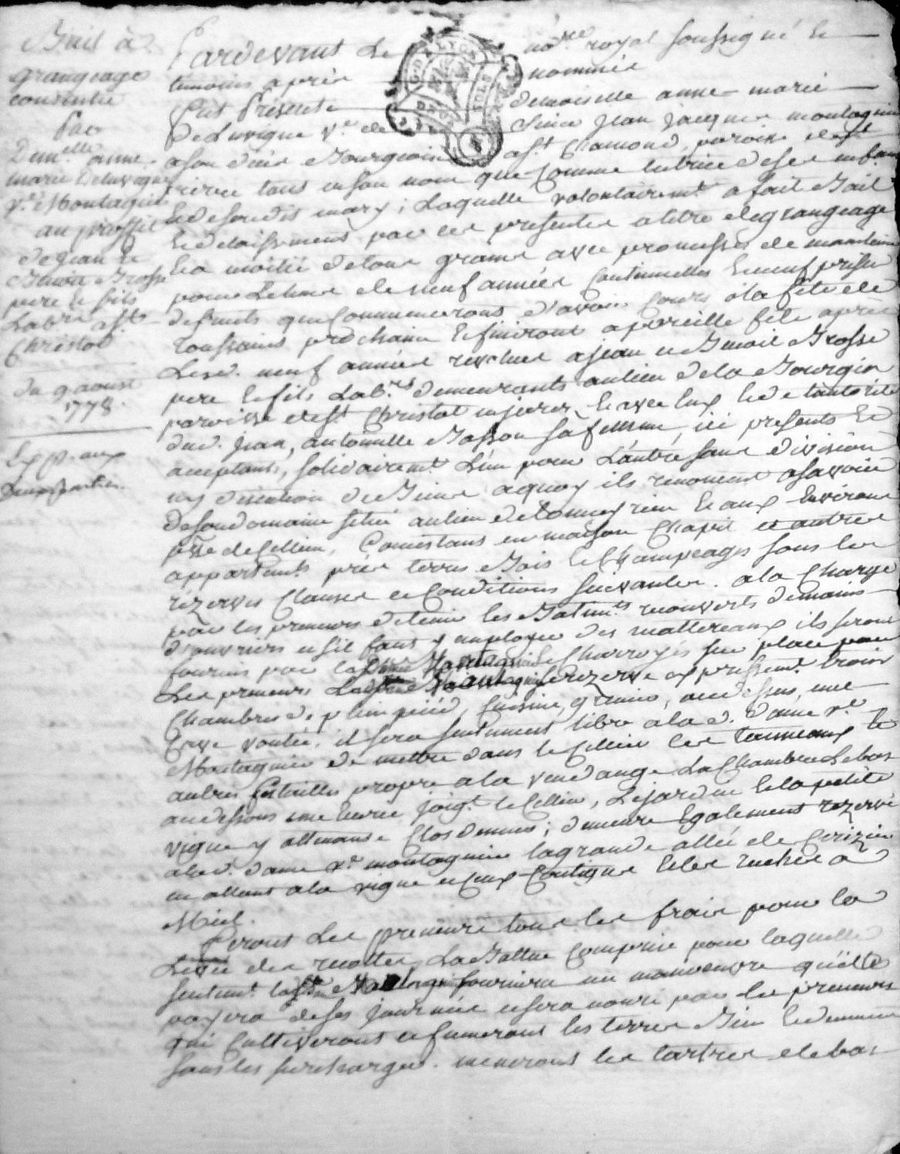 Bail à
grangeage
consentie
Par
Dem.elle anne
marie Deluvigne
v.e Montagnier
au proffit
de Jean et
Benoit Brosse
pere et fils
Lab.rs a St
Christot
du 9 aoust
1778
Exp. aux
deux parties
Pardevant Le no.re royal soussigné et
temoins après nommés
fut Presente demoiselle anne marie
Deluvigne v.e de Sieur Jean Jacques montagnier
a son vivant Bourgeois a St Chamond, paroisse de St
tant en son nom que comme tutrice de ses enfans
et de sondit mary; Laquelle volontairem.t a fait Bail
et delaissement par ces presentes a titre de grangeage
à la moitié de tous grains avec promesses de maintenir
pour Letems de neuf années Continuelles et neuf prises
de fruits que Commenceront d'avoir Cours à la fête de
Toussaint prochaine et finiront a pareille fête après
Lesd. neuf années revolues a Jean et Benoit Brosse
pere et fils Lab.rs demeurants au lieu de la Bourgin
paroisse de St Christot en jarez, et avec eux et de l'autorité
dud. Jean, antoinette Basson sa femme ici presents et
acceptants, solidairem.t L'un pour L'autre sans division
ny discution de Biens a quoy ils renoncent a savoir
de son domaine situé au lieu de et aux Environs
p.sse de Cellieu, Consistans en maison Chapit et autres
appartem.ts prez terres Bois et Champeages sous les
rezerves Clauses et Conditions suivantes. a la Charge
par les preneurs detenir les Batim.ts recouverts de mains
d'ouvriers et s'il faut y employer des matteriaux ils seront
fournis par la Montagnier Charroyés sur place par
Les preneurs La rezerve a present trois
Chambres de plein pied, Cuisine, grenier, au dessus, une
Cave voutée, il sera seulement libre a la d. dame v.e
Montagnier de mettre dans le Cellier les tonneaux et
autres futailles propre a la vendange La Chambre Le bas
au dessous une Curie joig.t le Cellier, Le jardin et la petite
vigne y attenante Clos de murs; demeure Egalement rezervé
a lad. dame v.e montagnier la grande allée de Cerizier
en allant a la vigne et Ceux Contigue et les ruches à
Miel.
Feront Les preneurs tous les frais pour la
Levée des recoltes, La Battue Comprise pour laquelle
seulem.t lad. fournira un manoeuvre qu'elle
payera de ses journées et sera nouri par les preneurs
qui Cultiveront et fumeront les terres Bien et dument
sans les surcharger. meneront les tartres et le bas